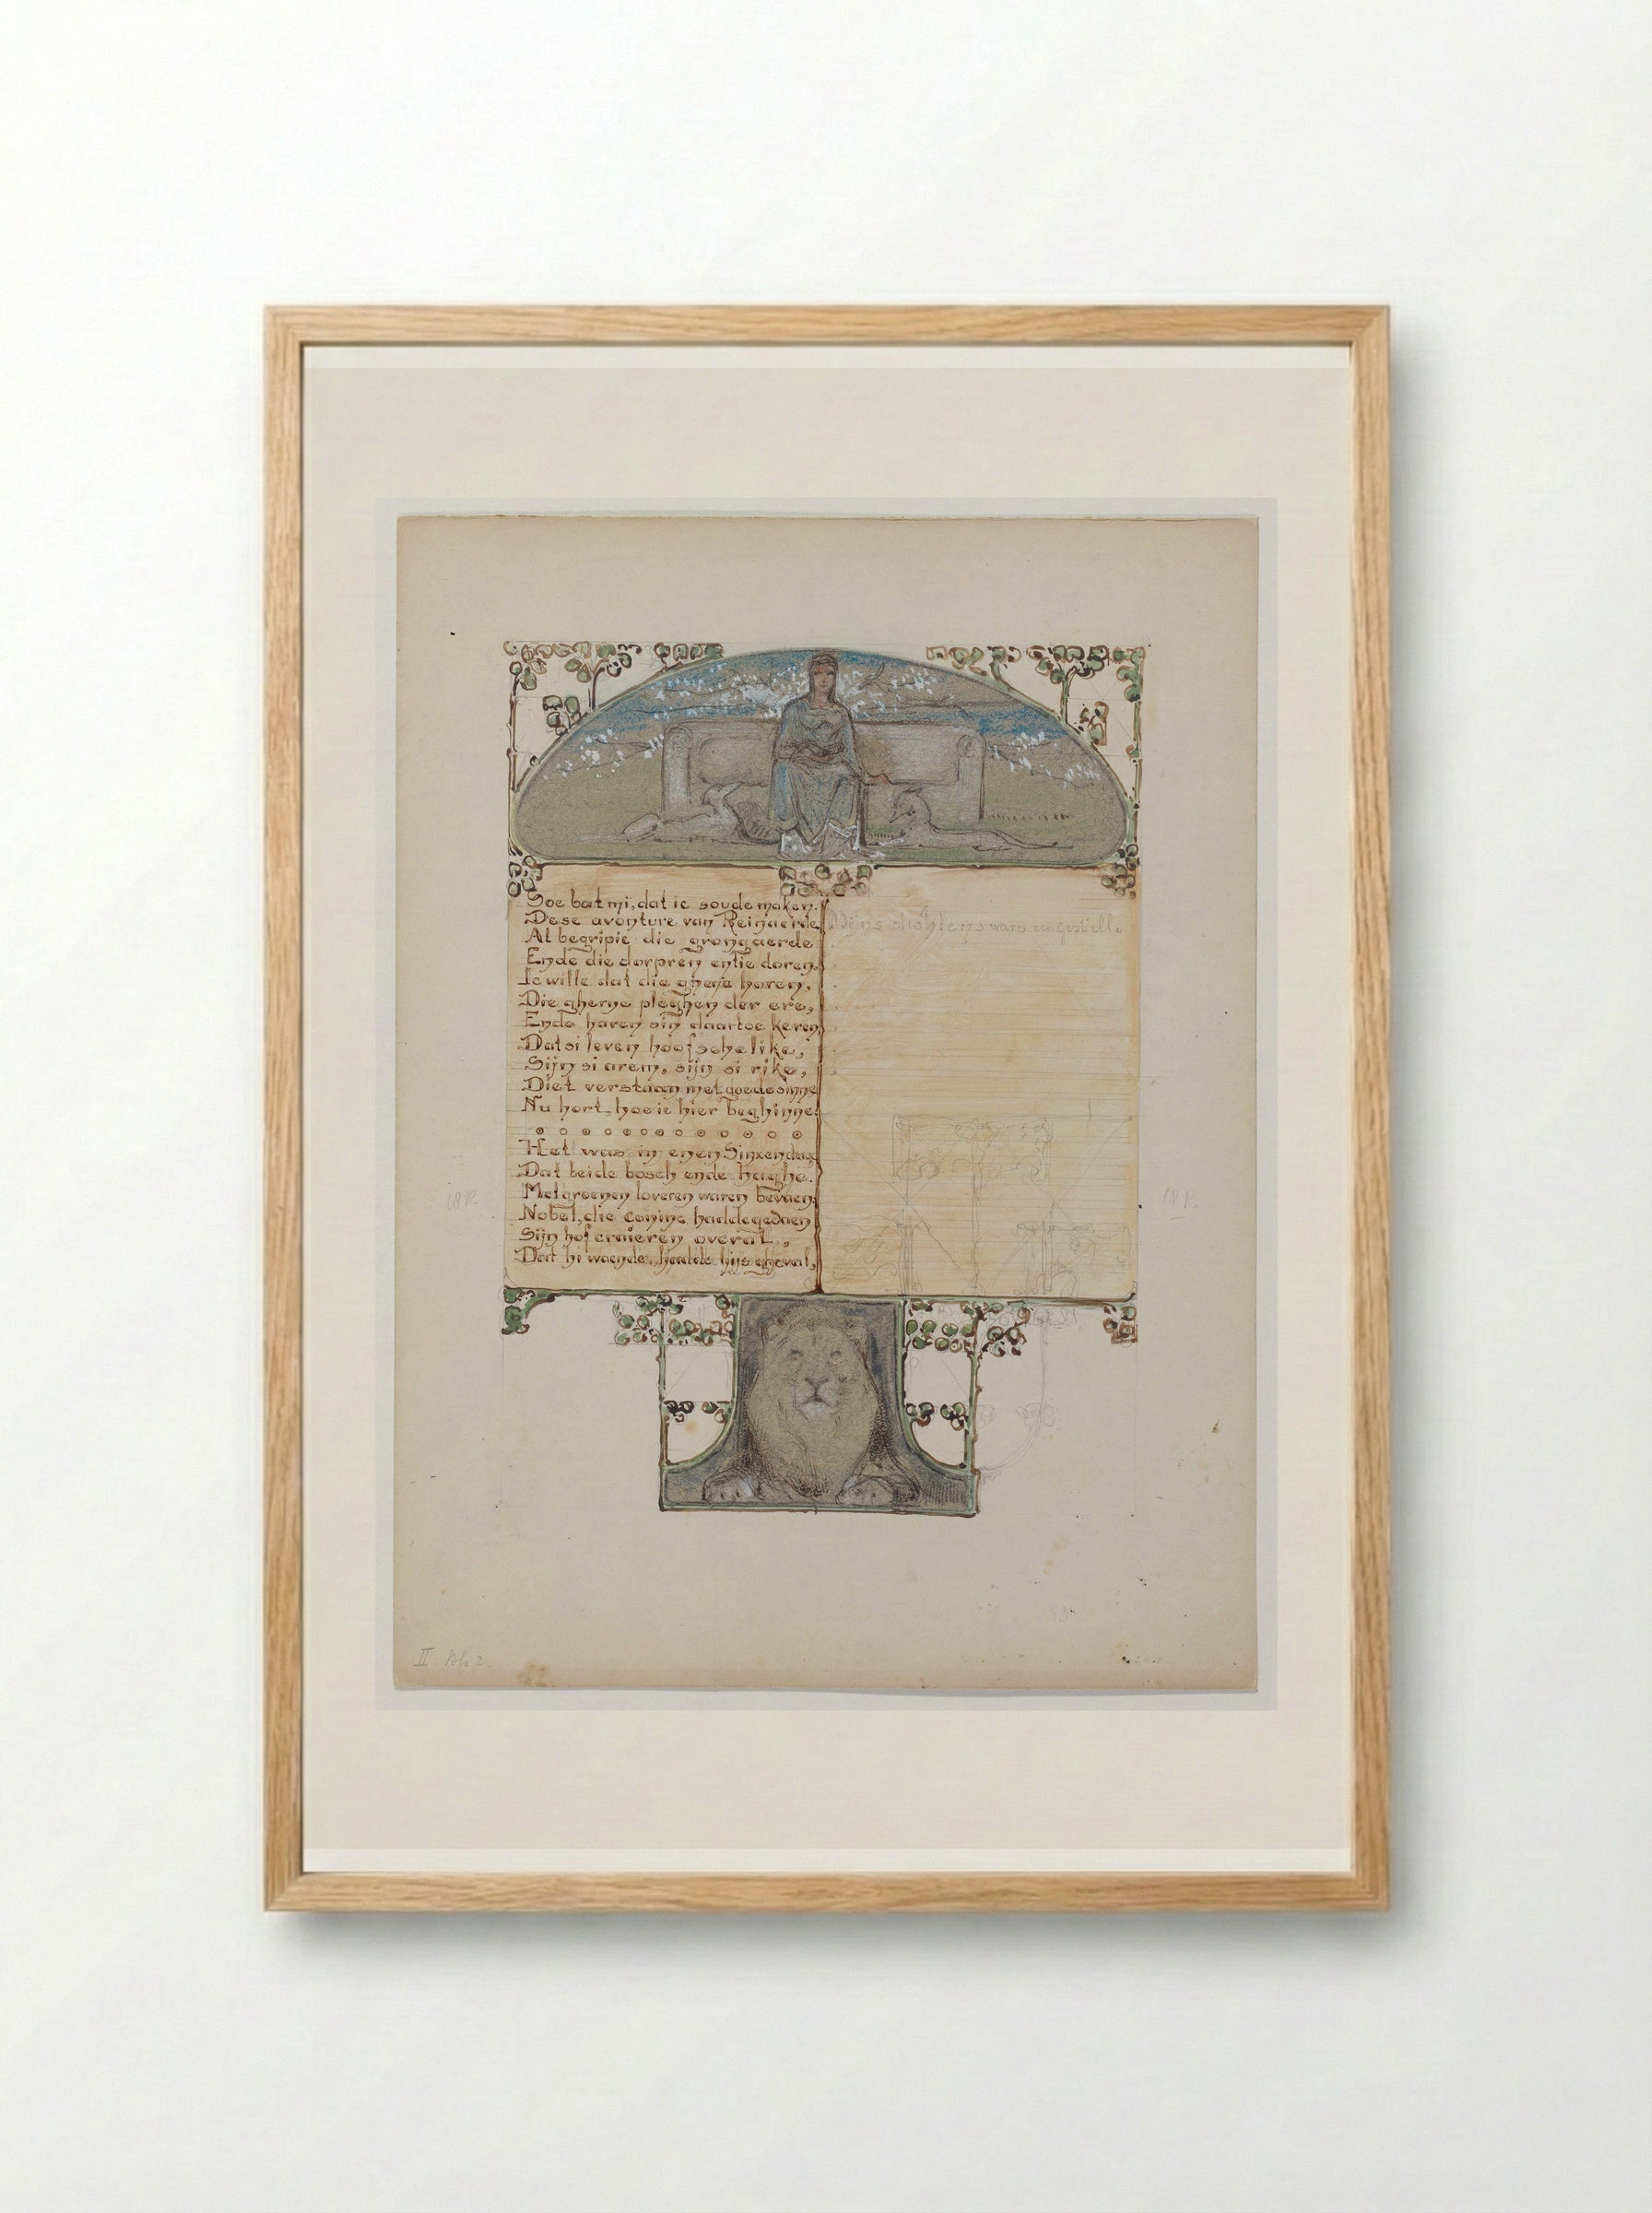 Soe bat mi, dat ic soude maken.
Dese avonture van Reinaerde
Al begripic die grongaerde
Ende die dorpren entie doren,
Ic wille dat die ghene horen,
Die gherne pleghen der ere,
Ende haren sin daartoe keren,
Dat si leven hoofschelike,
Sijn si arem, sijn si rike,
Diet verstaan met goede sinne
Nu hort, hoe ic hier beghinne.
Het was in enen Sinxendage
Dat beide bosch ende haghe.
Met groenen loveren waren bevaen.
Nobel, die coninc hadde gedaen
Sijn hof craieren overal,
Dat hi waende, hadde hijs gheval,
II. blz 2.